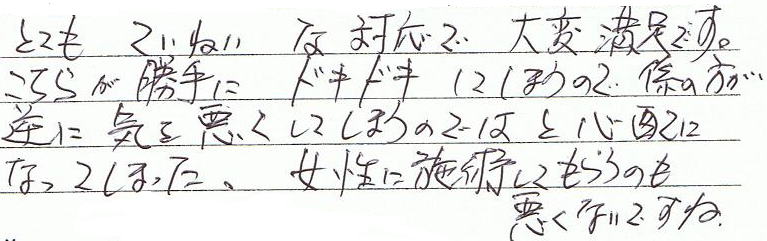 とても ていねい な 対応で 大変 満足です。
こちらが 勝手に ドキドキ してしまうので 係の方が
逆に 気を 悪く してしまうのではと 心配に
なってしまった、 女性に施術してもらうのも
悪くないですね。